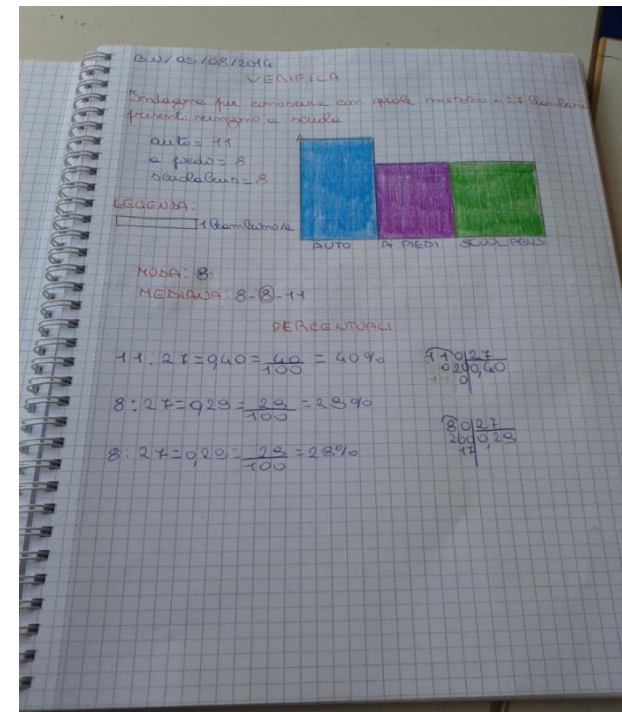 B.N/05/05/2014
VERIFICA
Indagine per conoscere con quale mezzo i 27 bambini
presenti vengono a scuola
auto= 11
a piedi= 8
scuolabus= 8
LEGENDA:
1 bambino/a
AUTO A PIEDI SCUOLABUS
MODA: 8
MEDIANA: 8-8-11
PERCENTUALI
11:27=0,40=40/100=40%
110 27
020 0,40
0
8:27=0,29=29/100=29%
80 27
260 0,29
17
8:27=0,29=29/100=29%